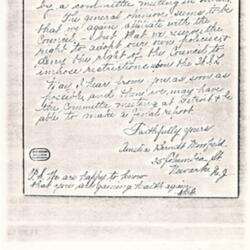 by a committee meeting in
The general opinion seems to be
that we again affiliate with the
Council – but that we reserve the
right to adopt our own policies &
deny the right of the Council to
impose restrictions about the
May I hear from you as soon as
possible, and then we may have
the committee meeting at Detroit & be
able to make a final report.
Faithfully yours
Amelia
Newark N.J.
P.S. We are happy to know
that you are gaining health again.